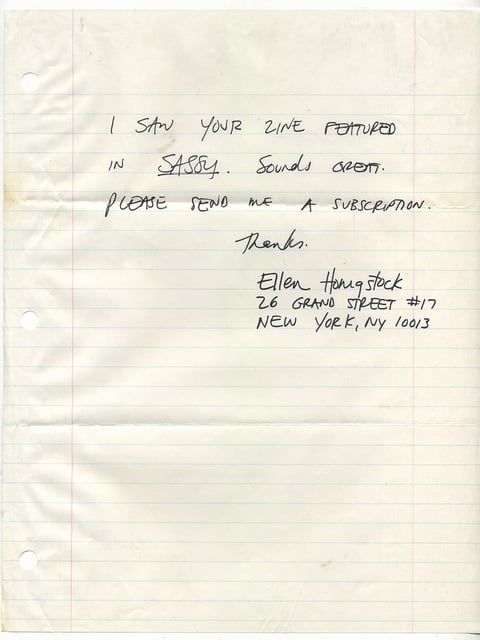 I SAW YOUR ZINE FEATURED
IN SASSY. Sounds GREAT.
PLEASE SEND ME A SUBSCRIPTION.
Thanks.
Ellen
26 GRAND STREET #17
NEW YORK, NY 10013